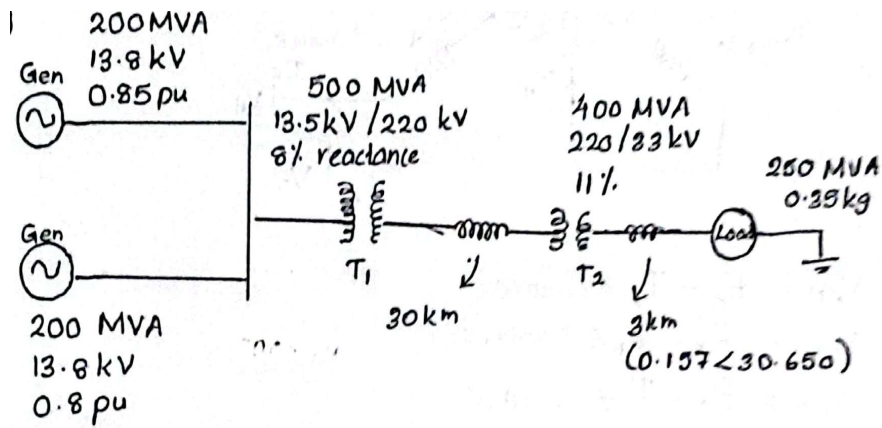 200 MVA
13.8 kV
0.85 pu
Gen
500 MVA
13.5kV / 220 kV
8% reactance
400 MVA
220/33 kV
11%
250 MVA
0.35kg
Gen
T1
30km
T2
Load
3km
(0.157<30.650)
200 MVA
13.8 kV
0.8 pu